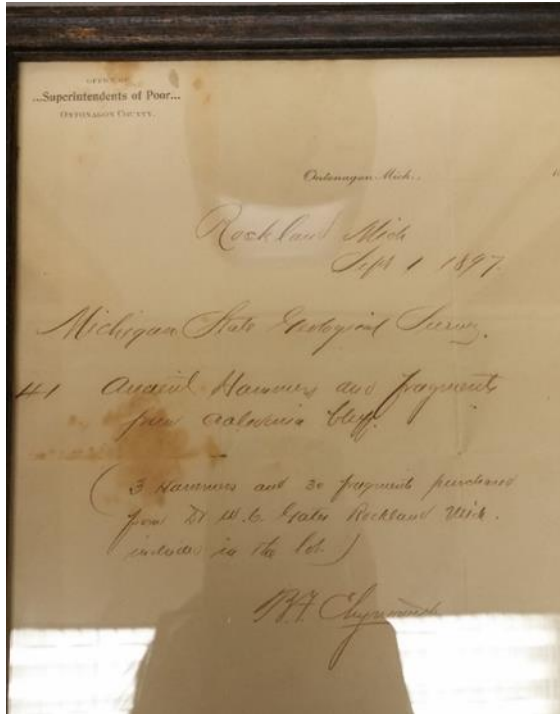 OFFICE OF
...Superintendents of Poor...
ONTONAGON COUNTY.
Ontonagon, Mich.,
Rockland Mich
Sept 1 1897.
Michigan State Geological Survey.
41 Ancient Hammers and fragments
from Caledonia Cliff.
(3 Hammers and 30 fragments purchased
from Dr W. C. Gates Rockland Mich.
included in the lot.)
B.F. Chynoweth